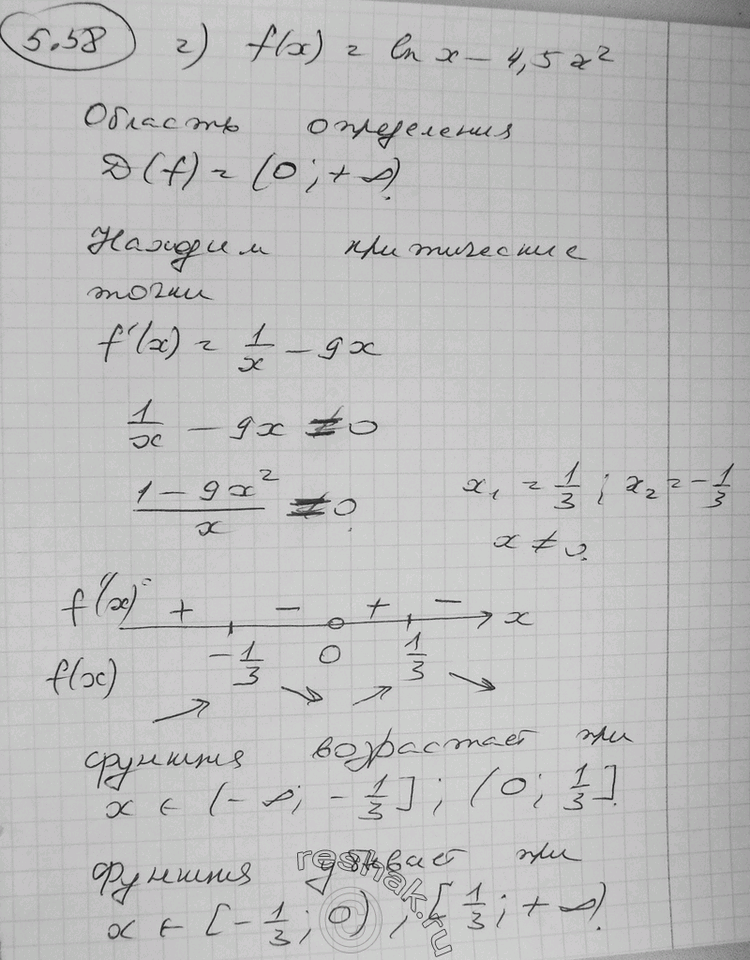 5.58 г) f(x) = ln x − 4,5 x²
Область определения
D(f) = (0; +∞).
Находим критические
точки
f'(x) = 1/x − 9x
1/x − 9x = 0
(1 − 9x²)/x = 0. x₁ = 1/3; x₂ = −1/3
x ≠ 0.
f'(x) + − + − x
−1/3 0 1/3
f(x) ↗ ↘ ↗ ↘
функция возрастает при
x ∈ (−∞; −1/3]; (0; 1/3].
функция убывает при
x ∈ [−1/3; 0), [1/3; +∞).
reshak.ru